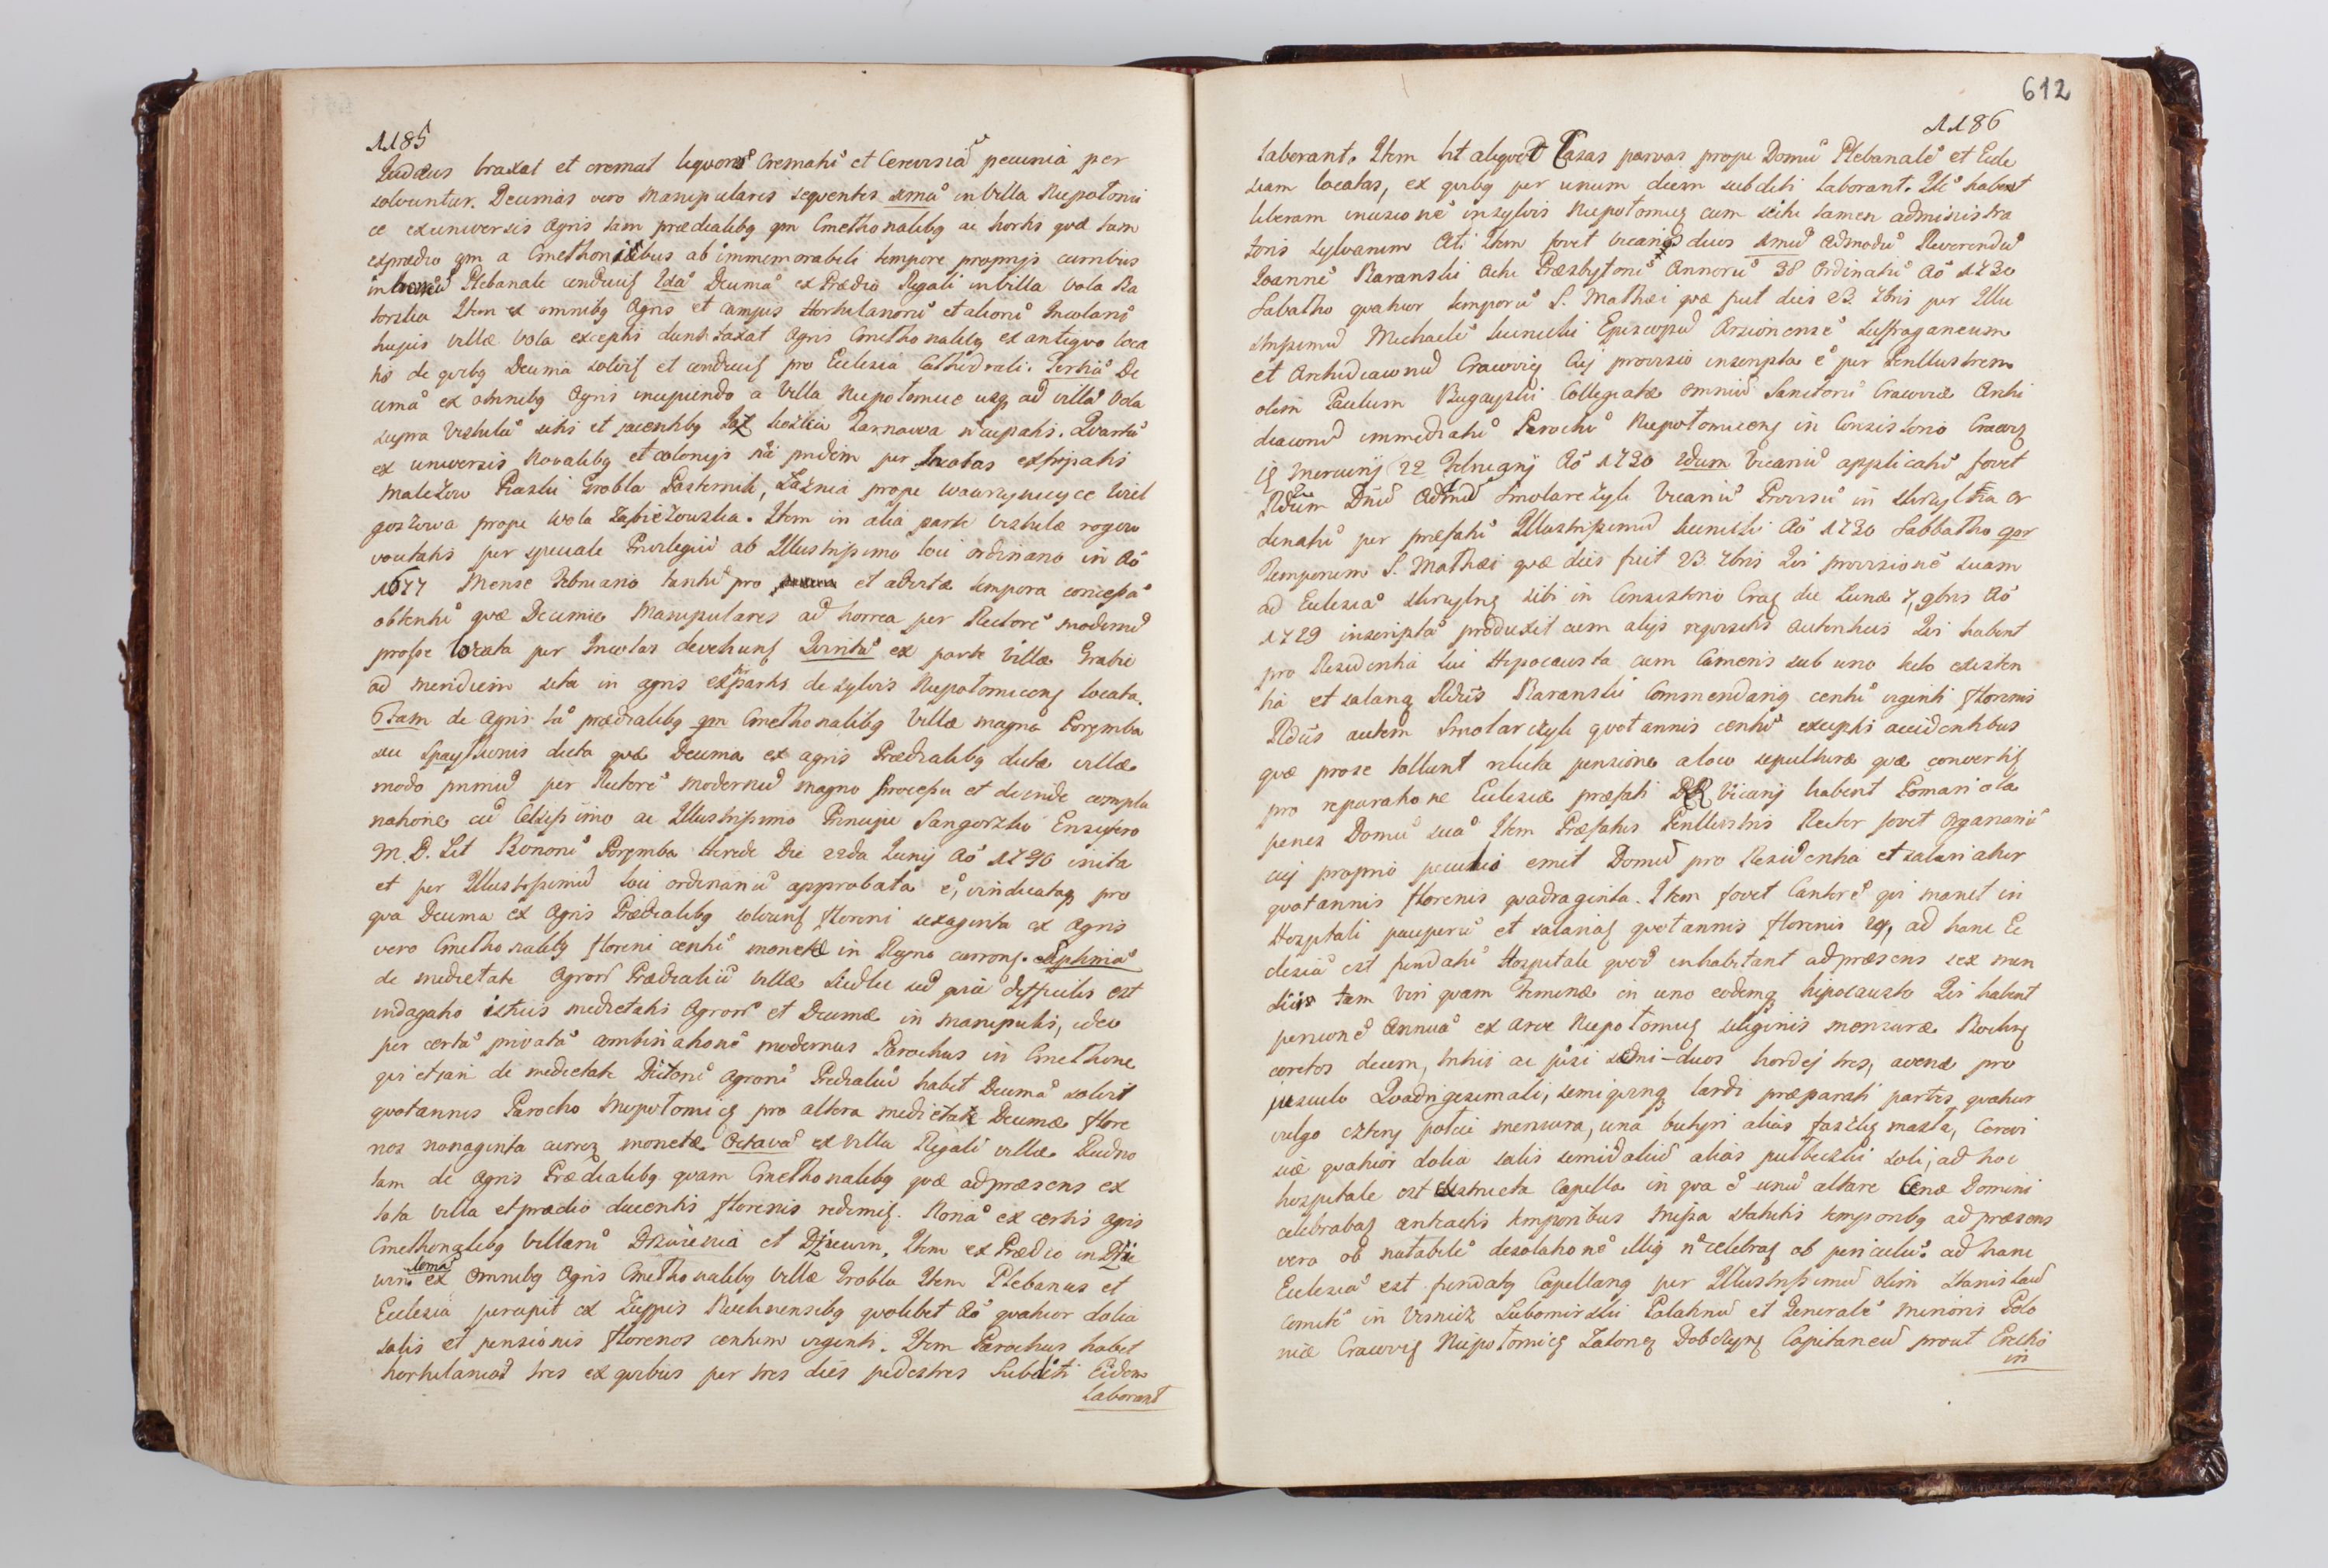 1185
Judæus braxat et cremat liquorū Cremati et Cerevisiā pecunia per
solvuntur. Decimas vero Manipulares sequentes 1mā in Villa Niepołomi
ce ex universis Agris tam prædialibq qm Cmethonalibq ac hortis quæ tam
ex prædio qm a Cmethonibus ab immemorabili tempore proprijs curribus
in Plebanale conducit 2dā Decimā ex Prædio Regali in Villa Wola Ba
torska Item ex omnibq Agris et Campis Hortulanorū et aliorū Incolarū
hujus Villæ Wola exceptis duntaxat Agris Cmethonalibq ex antiquo loca
tis de quibq Decima solvit et conducit pro Ecclesia Cathedrali. Tertiā De
cimā ex omnibq Agris incipiendo a Villa Niepołomice usq ad villā Wola
supra Vistulā sitis et jacentibq Tarnawa nūcupatis. Quartā
ex universis Novalibq et colonijs nō pridem per Incolas extirpatis
Mależow Piaski Grobla Pasternik, Łaźnia prope Wawrzynczyce Wiel
goszowa prope Wola Zabieżowska. Item in alia parte Vistulæ rogow
vocatis per speciale Privilegiū ab Illustrissimo loci ordinario in Aō
1677 Mense Februario tantū pro et advitæ tempora concessā
obtentū quæ Decimæ Manipulares ad horrea per Rectorē modernū
prosse locata per Incolas devehunt Quintā ex parte Villæ Grabie
ad meridiem sita in agris exstirpatis de sylvis Niepołomicens locata.
6tam de Agris tā prædialibq qm Cmethonalibq Villæ magna Poremba
seu Spaysionis dicta quæ Decima ex agris Prædialibq dictæ villæ
modo primū per Rectorē modernū magno processu et deinde compla
natione cū Celsissimo ac Illustrissimo Principe Sangorzko Ensifero
M. D. Lit Bonorū Poremba Herede Die 22da Junij Aō 1736 inita
et per Illustrissimū loci ordinariū approbata ē, vindicataq pro
qua Decima ex Agris Prædialibq solvunt floreni sexaginta ex Agris
vero Cmethonalibq floreni centū monetæ in Regno currens. Septimā
de medietate Agrorū Prædialiū villæ Siedlec sed quia difficilis est
indagatio istius medietatis Agrorū et Decimæ in manipulis, ideo
per certā privatā combinationē modernus Parochus in Cmethone
qui etiam de medietate Dictorū Agrorū Prædialiū habet Decimā solvit
quotannis Parocho Niepołomicz pro altera medietate Decimæ flore
nos nonaginta curren monetæ Octavā ex Villa Regali villæ Rudno
tam de Agris Prædialibq quam Cmethonalibq quæ ad præsens ex
tota Villa et prædio ducentis florenis redimit. Nonā ex certis Agris
Cmethonalibq Villarū Drwienia et Dziewin, Item ex Prædio in Dzie
win. 10mā ex Omnibq Agris Cmethonalibq Villæ Grobla Item Plebanus et
Ecclesia percipit ex Zuppis Bochnensibq quolibet Aō quatuor dolia
salis et pensionis florenos centum viginti. Item Parochus habet
hortulanos tres ex quibus per tres dies pedestres Subditi Eidem
laborant
612
1186
laborant. Item ht aliquot Casas parvas prope Domū Plebanalē et Eccle
siam locatas, ex quibq per unum diem subditi laborant. Itē habent
liberam incisionē in sylvis Niepołomic cum scitu tamen administra
toris sylvarum Ati Item fovet vicarios duos 1mū Admodū Reverendū
Joannē Baranski Actu Præsbyterū Annorū 38 Ordinatū Aō 1730
Sabatho quatuor temporū S. Mathæi quæ fuit dies 23. 7bris per Illu
strissimū Michaelē Kunicki Episcopū Arsionensē Suffraganeum
et Archidiaconū Cracovien Cuj provisio inscripta ē per Perillustrem
olim Paulum Bugayski Collegiatæ Omniū Sanctorū Cracoviæ Archi
diaconū immediatū Parochū Niepołomicens in Consistorio Cracov
die Mercurij 22 Februarij Aō 1730 2dum Vicariū applicatū fovet
Rdum Dnū Adamū Smolarczyk Vicariū Provisū in Skrzylka or
dinatū per præfatū Illustrissimū Kunicki Aō 1730 Sabbatho qor
Temporum S. Mathæi quæ dies fuit 23. 7bris Qui provisionē suam
ad Ecclesiā Skrzylns sibi in Consistorio Crac die Lunæ 7, 9bris Aō
1729 inscriptā produxit cum alijs requisitis autenticis Qui habent
pro Residentia sui Hipocausta cum Cameris sub uno tecto existen
tia et salariaq Rdūs Baranski Commendariq centū viginti florenis
Rdūs autem Smolarczyk quotannis centū exceptis accidentibus
quæ pro se tollunt relicta pensione a loco sepulturæ quæ convertit
pro reparatione Ecclesiæ præfati RR Vicarij habent Pomariola
penes Domū suā Item Præfatus Perillustris Rector fovet Organariū
cuj proprio peculio emit Domū pro Residentia et salariatur
quotannis florenis quadraginta. Item fovet Cantorē qui manet in
Hospitali pauperū et salariat quotannis florenis 24, ad hanc Ec
clesiā est fundatū Hospitale quod inhabitant ad præsens sex men
dici tam Viri quam Feminæ in uno eodemq hipocausto Qui habent
pensionē Annuā ex Arce Niepołomic siliginis mensuræ Bochn
coretos decem, tritici ac pisi sedni-duos hordej tres, avenæ pro
jusculo Quadrigesimali, semiquinq lardi præparati partes quatuor
vulgo cztery połcie mensura, una butyri alias faszkę masła, Cerevi
siæ quatuor dolia salis semidaliū alias pułbeczki soli, ad hoc
hospitale est exstructa Capella in qua ē unū altare Cænæ Domini
celebrabat anteactis temporibus Missa statutis temporibq ad præsens
vero ob notabilē desolationē illiq nō celebrat ob periculū. ad hanc
Ecclesiā est fundatq Capellanq per Illustrissimū olim Stanislaū
Comitē in Visnicz Lubomirski Palatinū et Generalē minoris Polo
niæ Cracovię Niepołomicę Zatorę Dobczycę Capitaneū prout Erectio
in